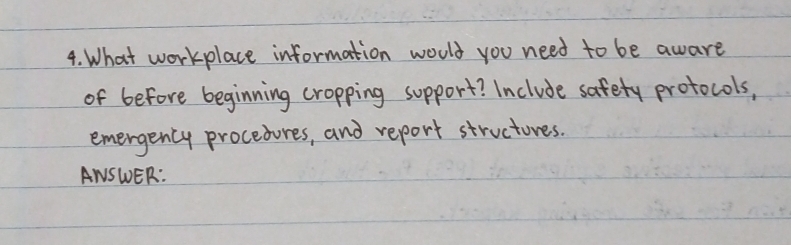 4. What workplace information would you need to be aware
of before beginning cropping support? Include safety protocols,
emergency procedures, and report structures.
ANSWER: